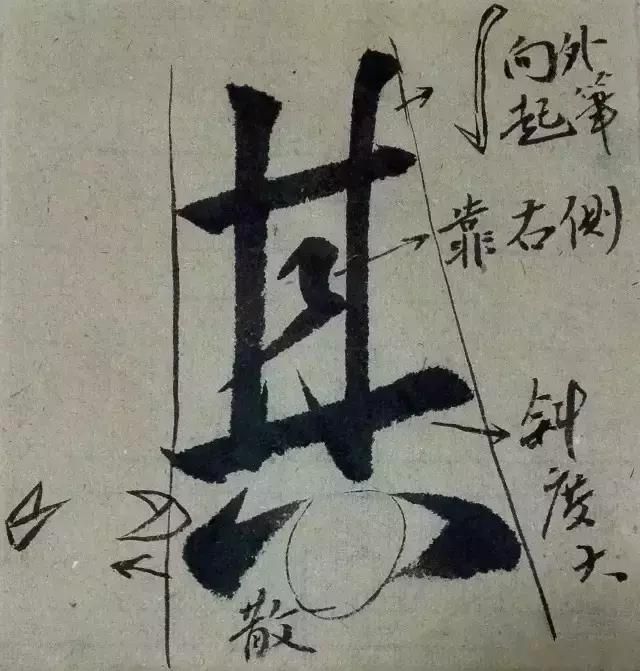 其
向外
起筆
靠右側
斜度大
散